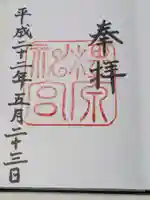 奉拝
平成二十二年五月二十三日